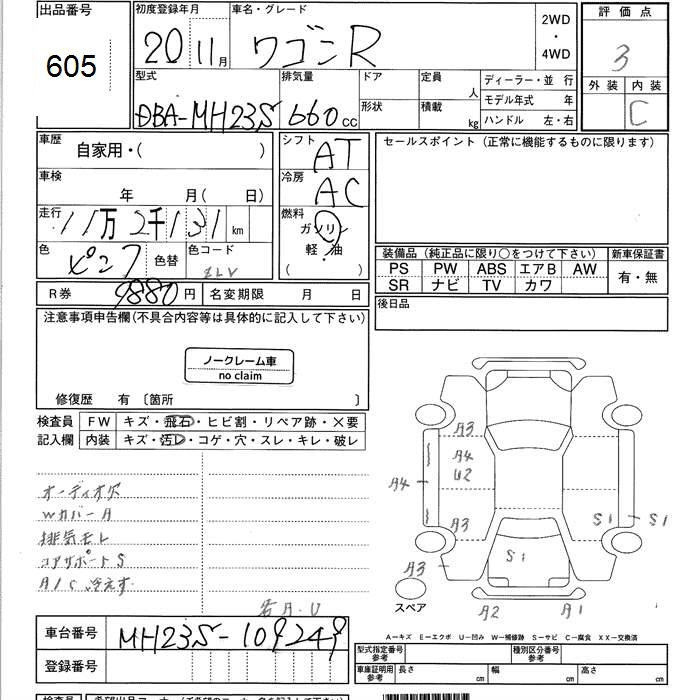 出品番号
605
初度登録年月
20 11月
車名・グレード
ワゴンR
2WD
・
4WD
評価点
3
外装 内装
C
型式
DBA-MH23S
排気量
660cc
ドア
形状
定員 人
積載 kg
ディーラー・並行
モデル年式 年
ハンドル 左・右
車歴
自家用・( )
車検
年 月( 日)
走行
11万2千131km
色
ピンク
色替
色コード
ZLV
シフト
AT
冷房
AC
燃料
ガソリン
軽・油
( )
セールスポイント(正常に機能するものに限ります)
装備品(純正品に限り○をつけて下さい)
新車保証書
PS PW ABS エアB AW
SR ナビ TV カワ
有・無
後日品
R券 9880円
名変期限 月 日
注意事項申告欄(不具合内容等は具体的に記入して下さい)
ノークレーム車
no claim
修復歴 有 〔箇所 〕
検査員
記入欄
FW キズ・飛石・ヒビ割・リペア跡・×要
内装 キズ・汚レ・コゲ・穴・スレ・キレ・破レ
オーディオ欠
Wカバー A
排気モレ
コアサポート S
A/C 冷えず
各A.U
A3
A4
U2
A4
A3
A3
S1
S1
S1
スペア
A2
A1
A-キズ E-エクボ U-凹み W-補修跡 S-サビ C-腐食 XX-交換済
車台番号
MH23S-109249
登録番号
型式指定番号
参考
種別区分番号
参考
車庫証明用
参考
長さ cm
幅 cm
高さ cm
検査員